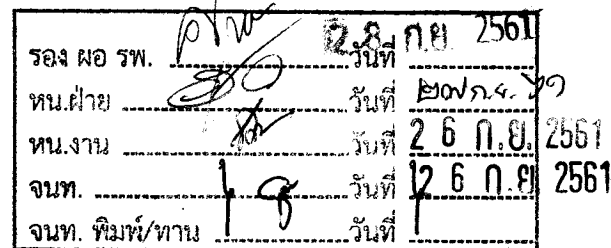 รอง ผอ รพ. วันที่ 28 ก.ย. 2561
หน.ฝ่าย วันที่ ๒๗ ก.ย. ๖๑
หน.งาน วันที่ 2 6 ก.ย. 2561
จนท. วันที่ 2 6 ก.ย. 2561
จนท. พิมพ์/ทาน วันที่